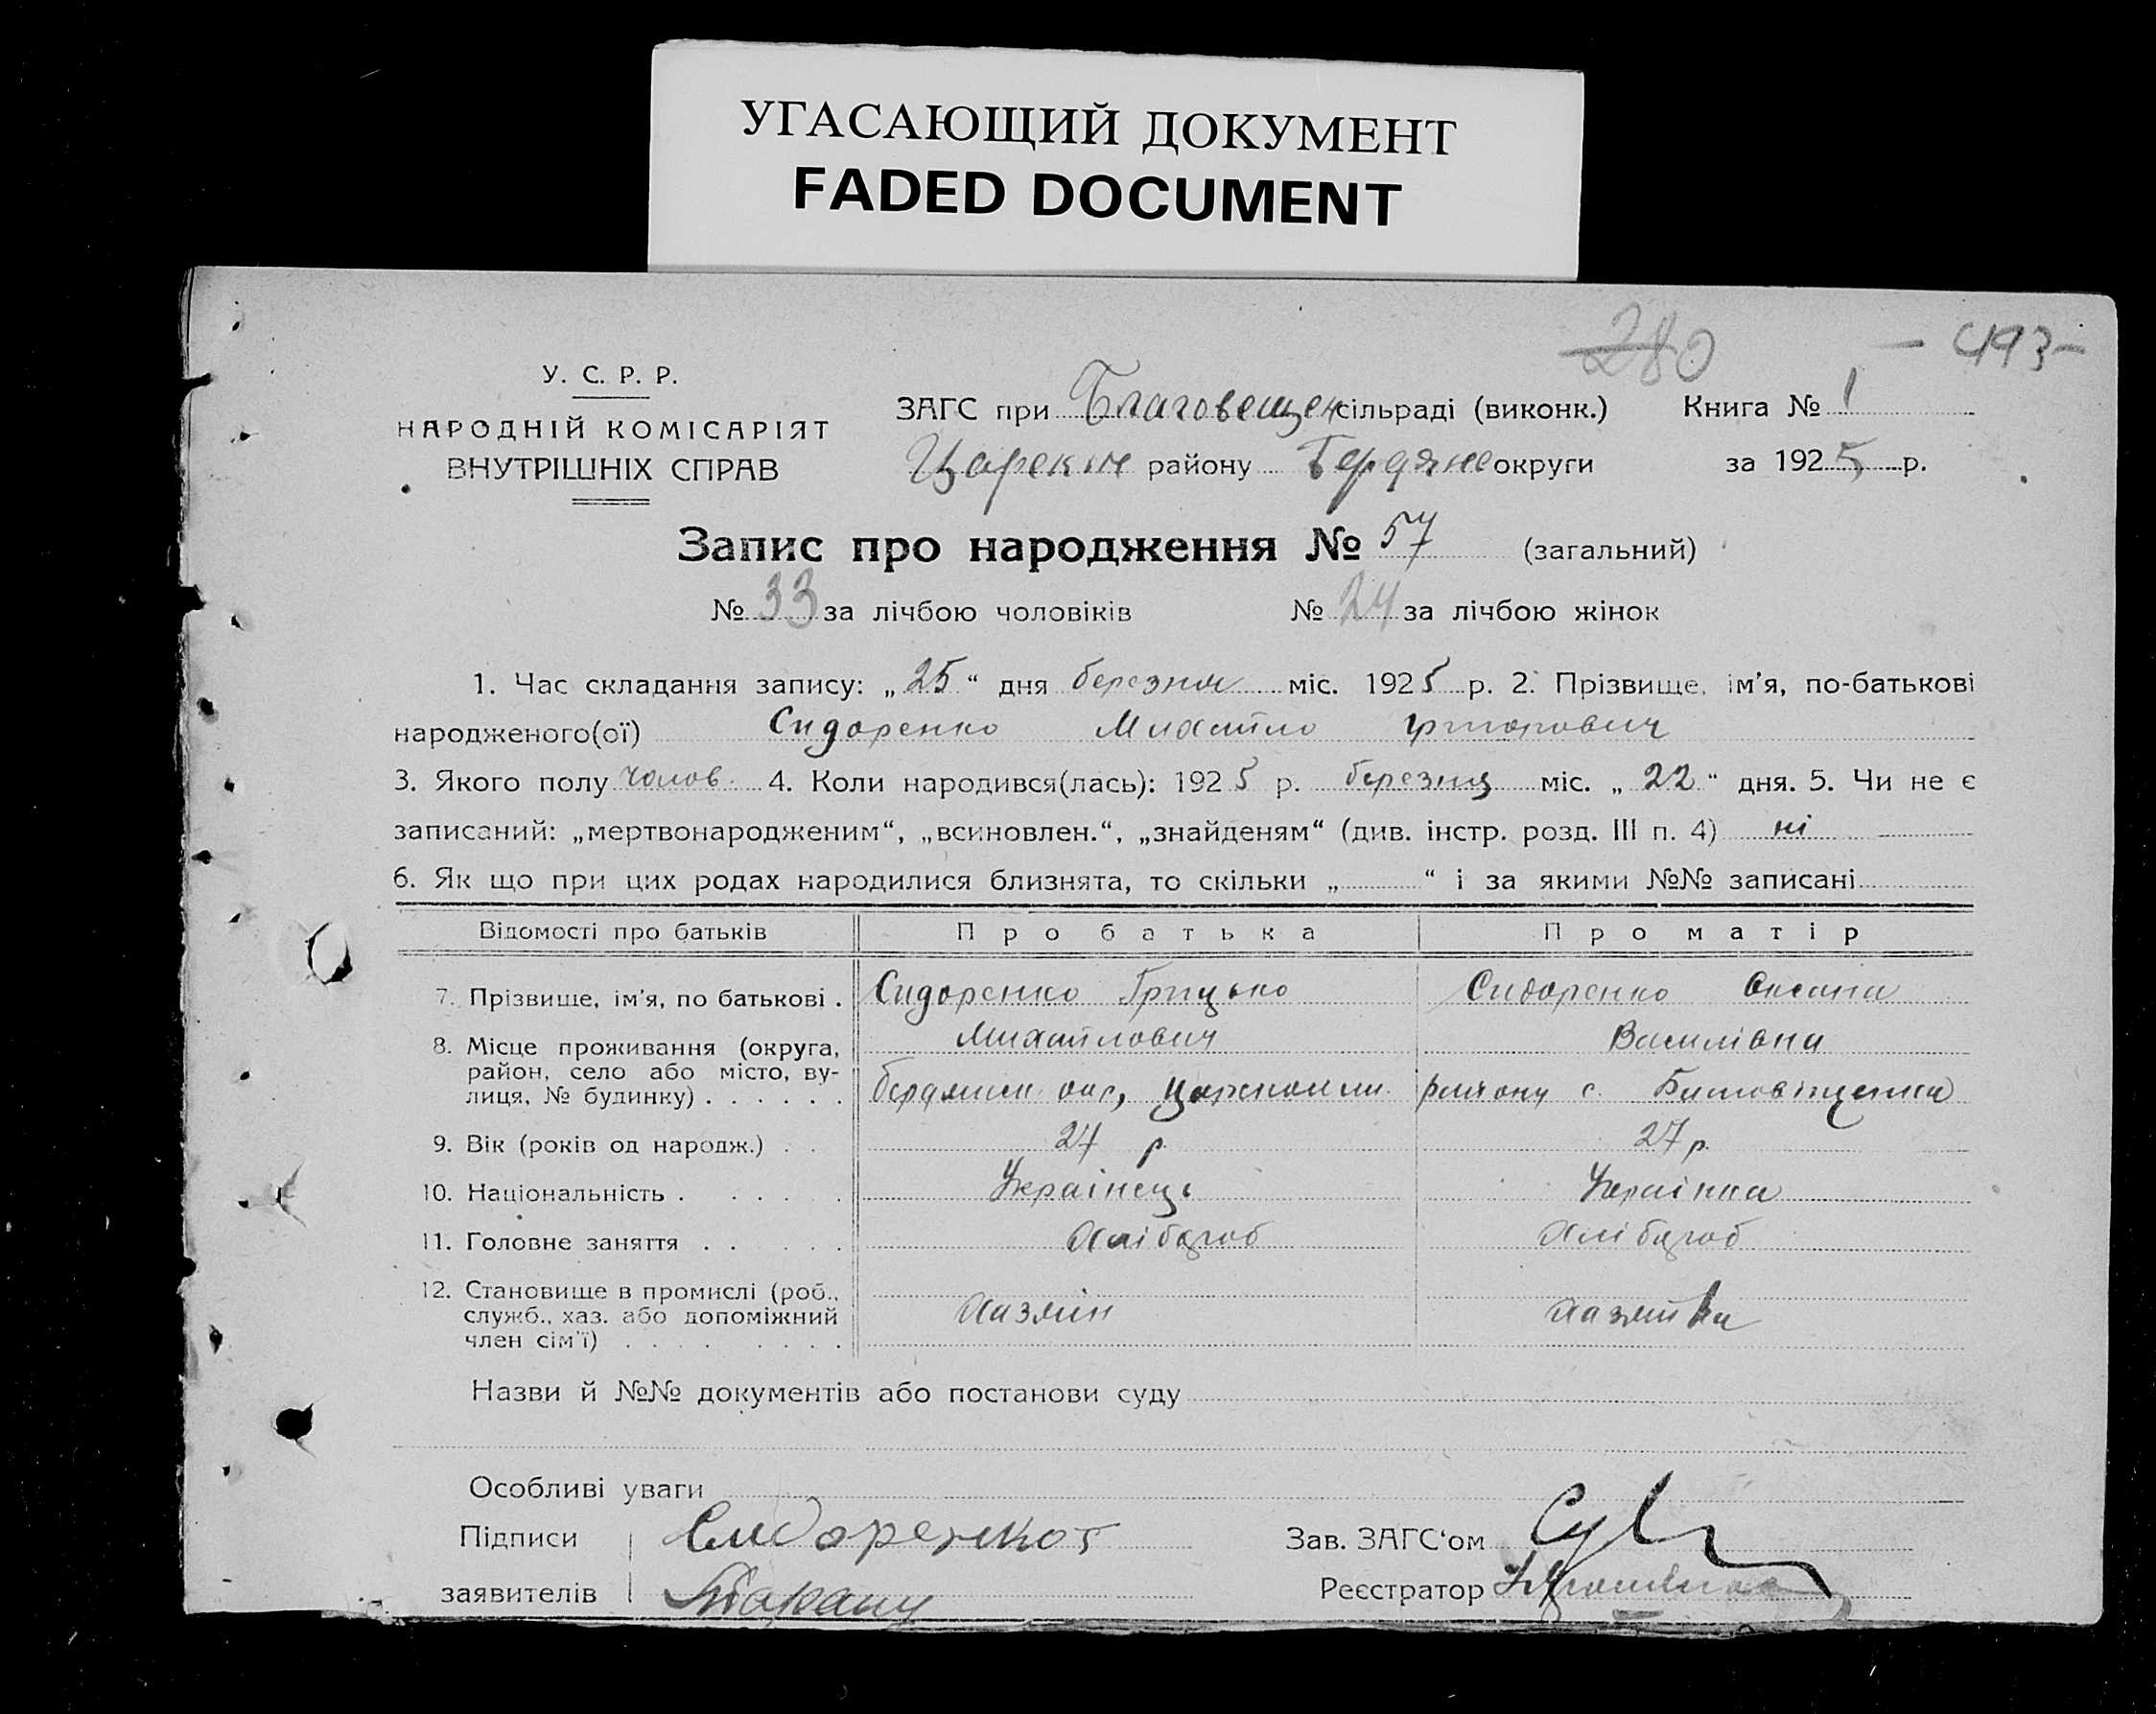 УГАСАЮЩИЙ ДОКУМЕНТ
FADED DOCUMENT
280 – 493 –
У. С. Р. Р.
НАРОДНІЙ КОМІСАРІЯТ
ВНУТРІШНІХ СПРАВ
ЗАГС при Благовещен сільраді (виконк.) Книга № 1
Царекін району Бердянс округи за 1925 р.
Запис про народження № 57 (загальний)
№ 33 за лічбою чоловіків № 24 за лічбою жінок
1. Час складання запису: „25“ дня березня міс. 1925 р. 2. Прізвище, ім'я, по-батькові
народженого(ої) Сидоренко Михайло Григорович
3. Якого полу чолов. 4. Коли народився(лась): 1925 р. березня міс. „22“ дня. 5. Чи не є
записаний: „мертвонародженим“, „всиновлен.“, „знайденям“ (див. інстр. розд. III п. 4) ні
6. Як що при цих родах народилися близнята, то скільки „ “ і за якими №№ записані
Відомості про батьків Про батька Про матір
7. Прізвище, ім'я, по батькові . Сидоренко Грицько Сидоренко Оксана
Михайлович Василівна
8. Місце проживання (округа,
район, село або місто, ву-
лиця, № будинку) . . . . . . Бердянськ окр, району с.
9. Вік (років од народж.) . . 24 р 27 р.
10. Національність . . . . . Українець Українка
11. Головне заняття . . . . . Хлібороб Хлібороб
12. Становище в промислі (роб.,
служб., хаз. або допоміжний
член сім'ї) . . . . . . . . хазяїн хазяйка
Назви й №№ документів або постанови суду
Особливі уваги
Підписи Сидоренко Зав. ЗАГС'ом
заявителів Реєстратор